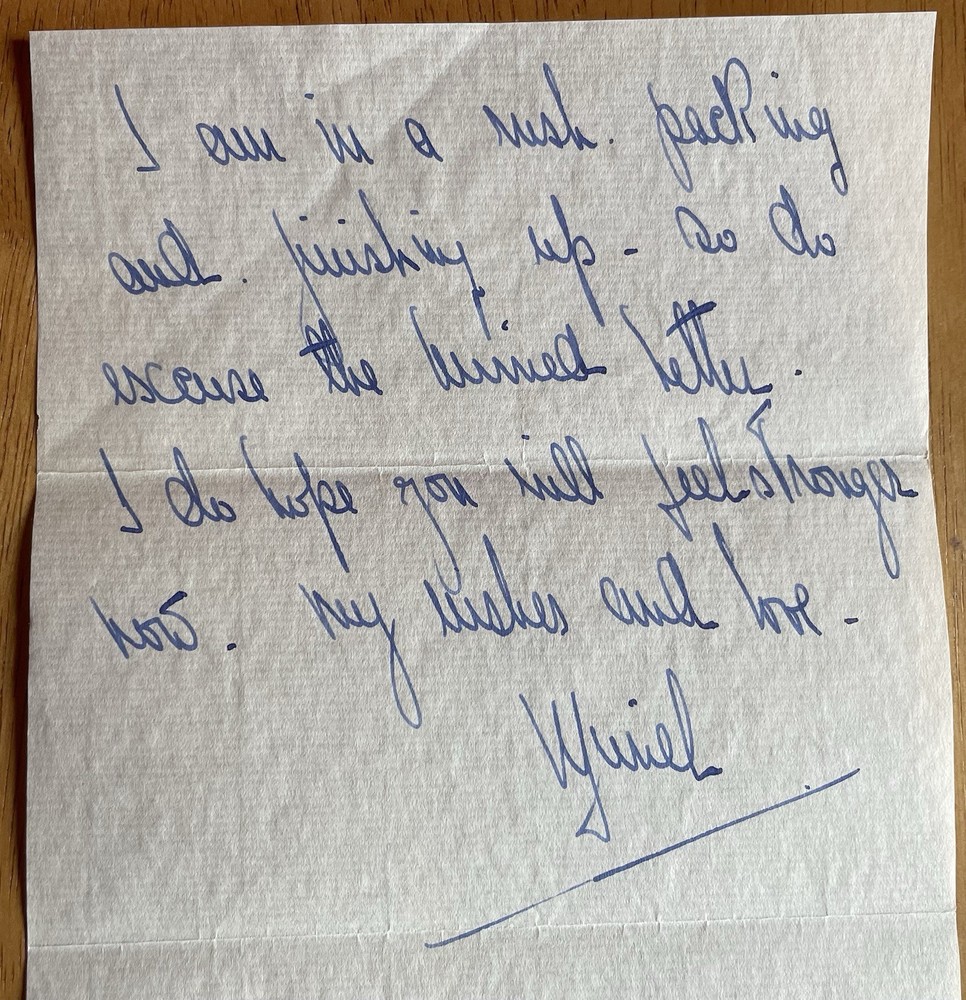 I am in a rush. packing
and. finishing up - so do
excuse the hurried letter.
I do hope you will feel stronger
now. my wishes and love -